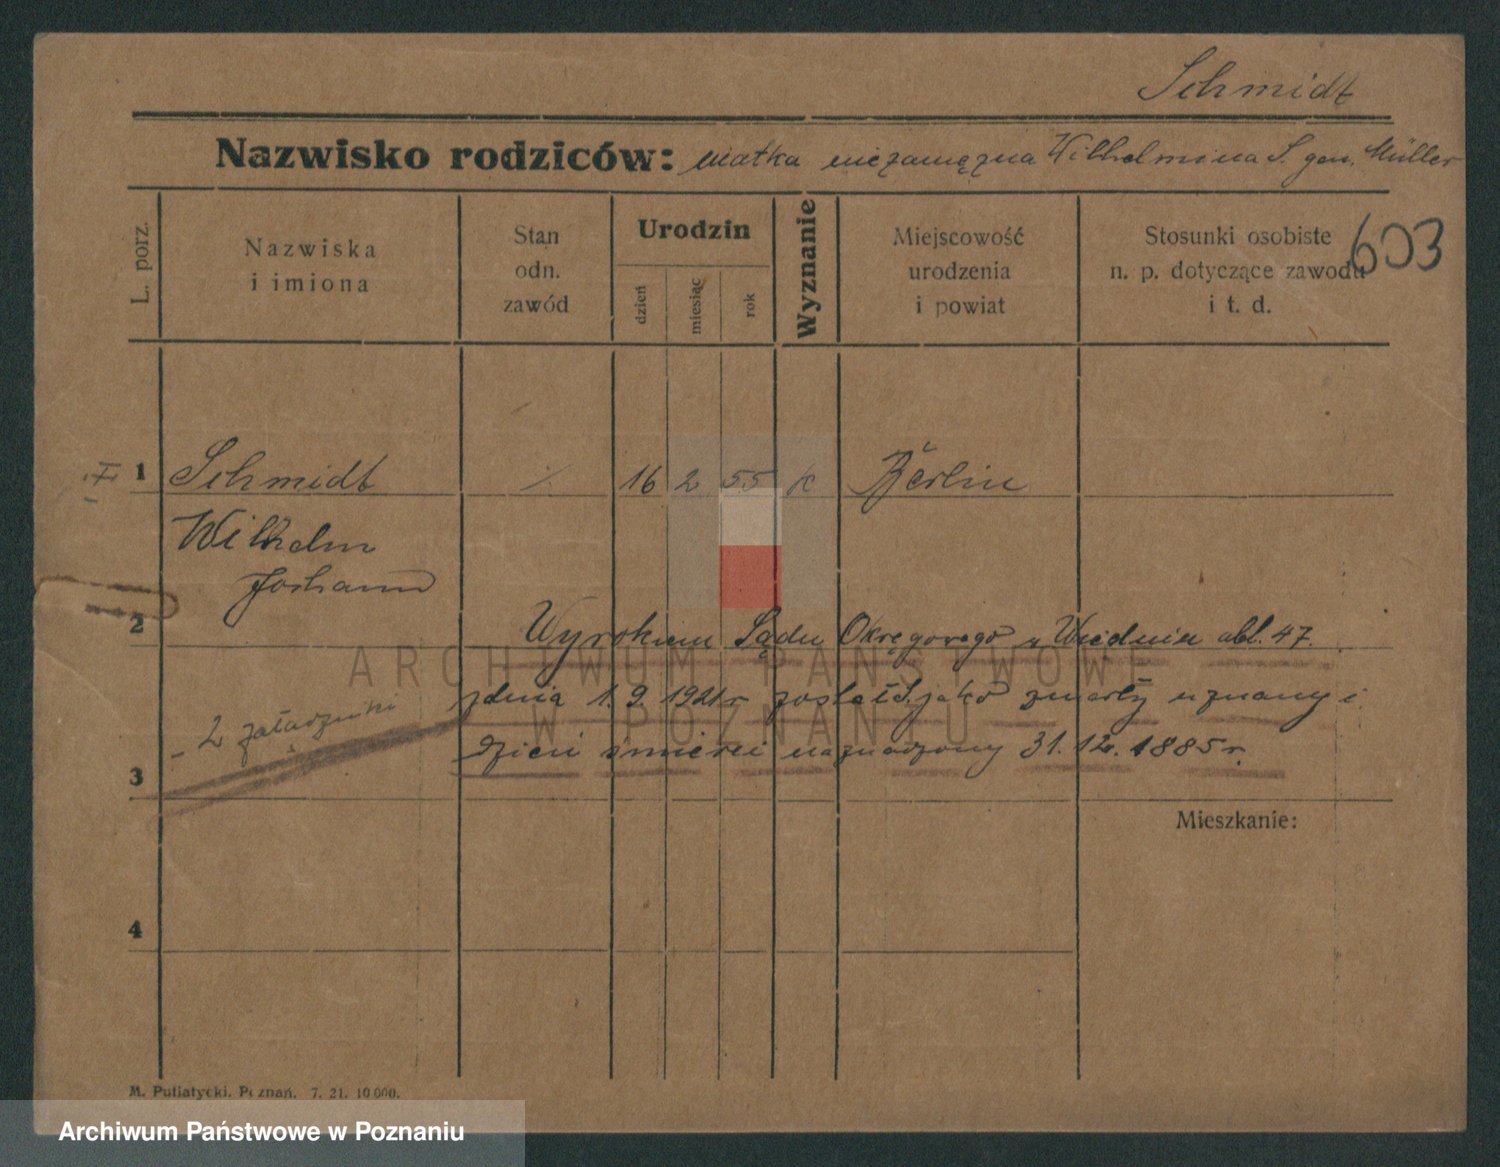 Schmidt
Nazwisko rodziców: matka niezamężna Wilhelmina S. gen. Müller
603
L. porz.
Nazwiska
i imiona
Stan
odn.
zawód
Urodzin
dzień
miesiąc
rok
Wyznanie
Miejscowość
urodzenia
i powiat
Stosunki osobiste
n. p. dotyczące zawodu
i t. d.
1 Schmidt 16 2 55 k Berlin
Wilhelm
Johann
2
Wyrokiem Sądu Okręgowego w Wiedniu abl. 47.
z dnia 1. 9. 1921 r został S. jako zmarły uznany i
dzień śmierci naznaczony 31. 12. 1885 r.
- 2 załączniki
3
Mieszkanie:
4
ARCHIWUM PAŃSTWOWE
W POZNANIU
M. Putiatycki. Poznań. 7. 21. 10 000.
Archiwum Państwowe w Poznaniu